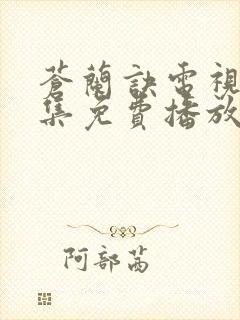 蒼蘭訣電視
集免費播放
阿部茜